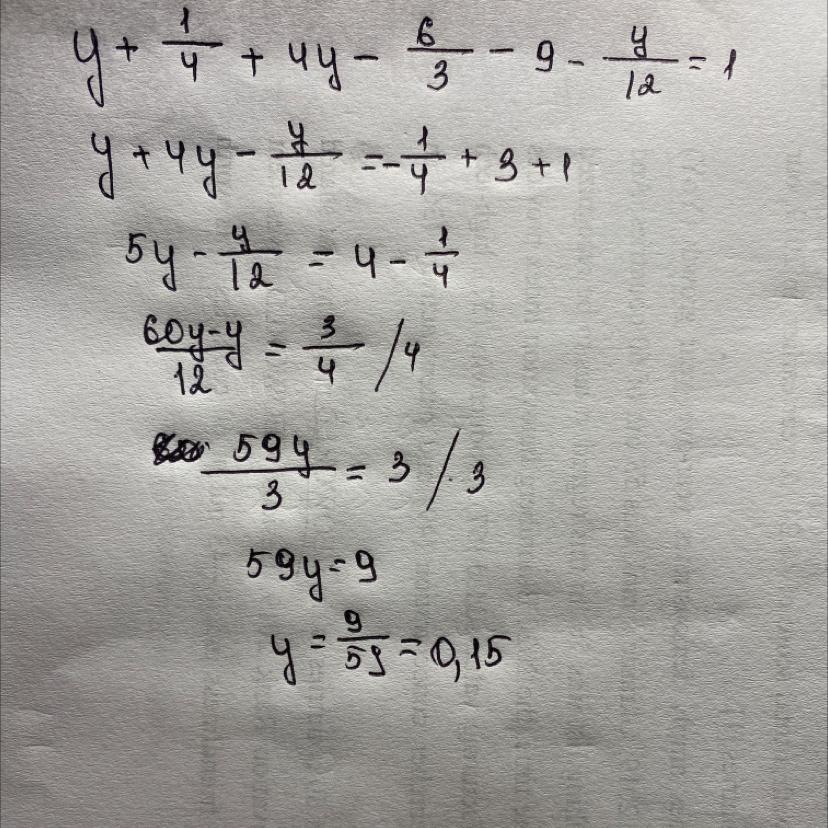 y + 1/4 + 4y - 6/3 - 9 - y/12 = 1
y + 4y - y/12 = -1/4 + 3 + 1
5y - y/12 = 4 - 1/4
60y-y/12 = 3/4 /4
59y/3 = 3 /·3
59y = 9
y = 9/59 = 0,15